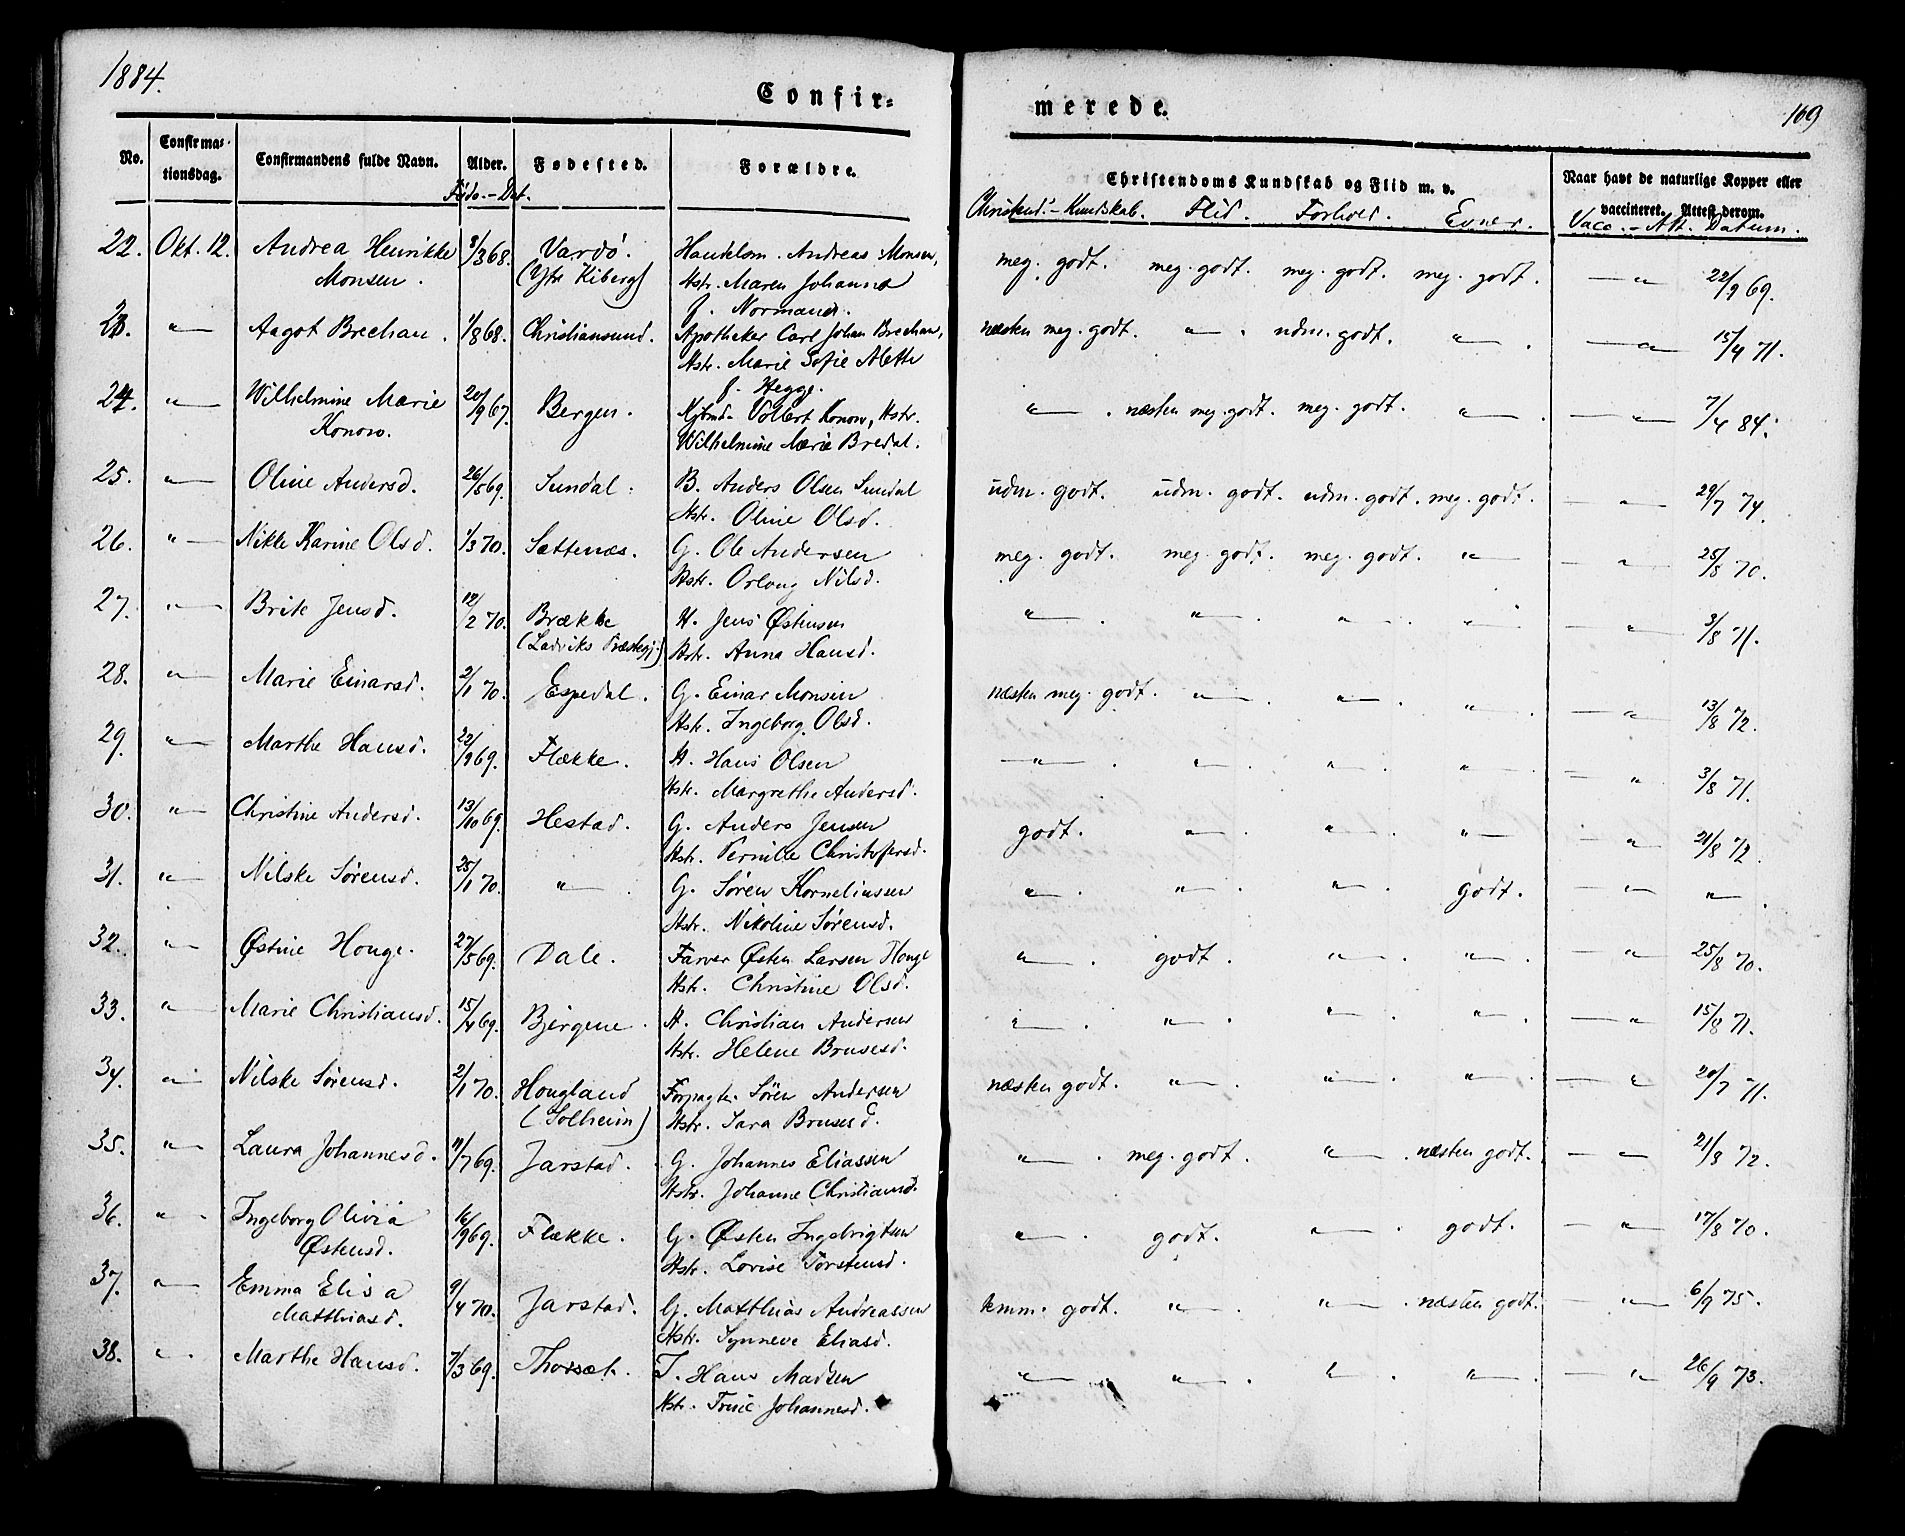 1884.
Confir=
merede.
169
No. Confirmationsdag. Confirmandens fulde Navn. Alder. Fødested. Forældre. Christendoms Kundskab og Flid m. v. Naar havt de naturlige Kopper eller vaccineret. Attest derom.
Føds.-Dat. Christend.-Kundskab. Flid. Forhold. Evner. Vacc.-Att. Datum.
22. Okt. 12. Andrea Henrikke 3/3 68. Vardö. Handelsm. Andreas Monsen, meg. godt. meg. godt. meg. godt. meg. godt. — " 22/9 69.
Monsen. (Ytre Kiberg) Hstr. Maren Johanna
f. Normann.
23. " Aagot Brechan. 1/8 68. Christiansund. Apotheker Carl Johan Brechan, næsten meg. godt. " udm. godt. " — " 15/4 71.
Hstr. Marie Sofie Alette
f. Hegge.
24. " Wilhelmine Marie 20/9 67. Bergen. Kjbmd. Volbert Konow, Hstr. " næsten meg. godt. meg. godt. " — " 7/4 84.
Konow. Wilhelmine Marie Bredal.
25. " Oline Andersd. 26/5 69. Sundal. B. Anders Olsen Sundal udm. godt. udm. godt. udm. godt. meg. godt. — " 29/7 74.
Hstr. Oline Olsd.
26. " Nikke Karine Olsd. 1/3 70. Sættenæs. G. Ole Andersen meg. godt. meg. godt. meg. godt. " — " 25/8 70.
Hstr. Orlaug Nilsd.
27. " Brite Jensd. 12/2 70. Brække H. Jens Østensen " " " " — " 3/8 71.
(Ladviks Præstegj.) Hstr. Anna Hansd.
28. " Marie Einarsd. 2/1 70. Espedal. G. Einar Monsen næsten meg. godt. " " " — " 13/8 72.
Hstr. Ingeborg Olsd.
29. " Marthe Hansd. 22/9 69. Flække. H. Hans Olsen " " " " — " 3/8 71.
Hstr. Margrethe Andersd.
30. " Christine Andersd. 13/10 69. Hestad. G. Anders Jensen godt. " " " — " 21/8 72.
Hstr. Pernille Christofersd.
31. " Nilske Sørensd. 25/1 70. " G. Søren Korneliussen " " " godt. — " "
Hstr. Nikoline Sørensd.
32. " Østine Houge. 27/5 69. Dale. Farver Østen Larsen Houge " godt. " " — " 25/8 70.
Hstr. Christine Olsd.
33. " Marie Christiansd. 15/4 69. Bjergene. H. Christian Andersen " " " " — " 15/8 71.
Hstr. Helene Brusesd.
34. " Nilske Sørensd. 2/1 70. Hougland Forpagter Sören Andersen næsten godt. " " " — " 20/7 71.
(Solheim) Hstr. Sara Brusesd.
35. " Laura Johannesd. 11/7 69. Jarstad. G. Johannes Eliassen " meg. godt. " næsten godt. — " 21/8 72.
Hstr. Johanne Christiansd.
36. " Ingeborg Olivia 16/9 69. Flække. G. Østen Ingebrigtsen " godt. " godt. — " 17/8 70.
Østensd. Hstr. Lovise Torstensd.
37. " Emma Elisa 9/4 70. Jarstad. G. Matthias Andreassen temm. godt. " " næsten godt. — " 6/9 75.
Matthiasd. Hstr. Synneve Eliasd.
38. " Marthe Hansd. 7/3 69. Thorsæt. I. Hans Madsen " " " " — " 26/9 73.
Hstr. Trine Johannesd.